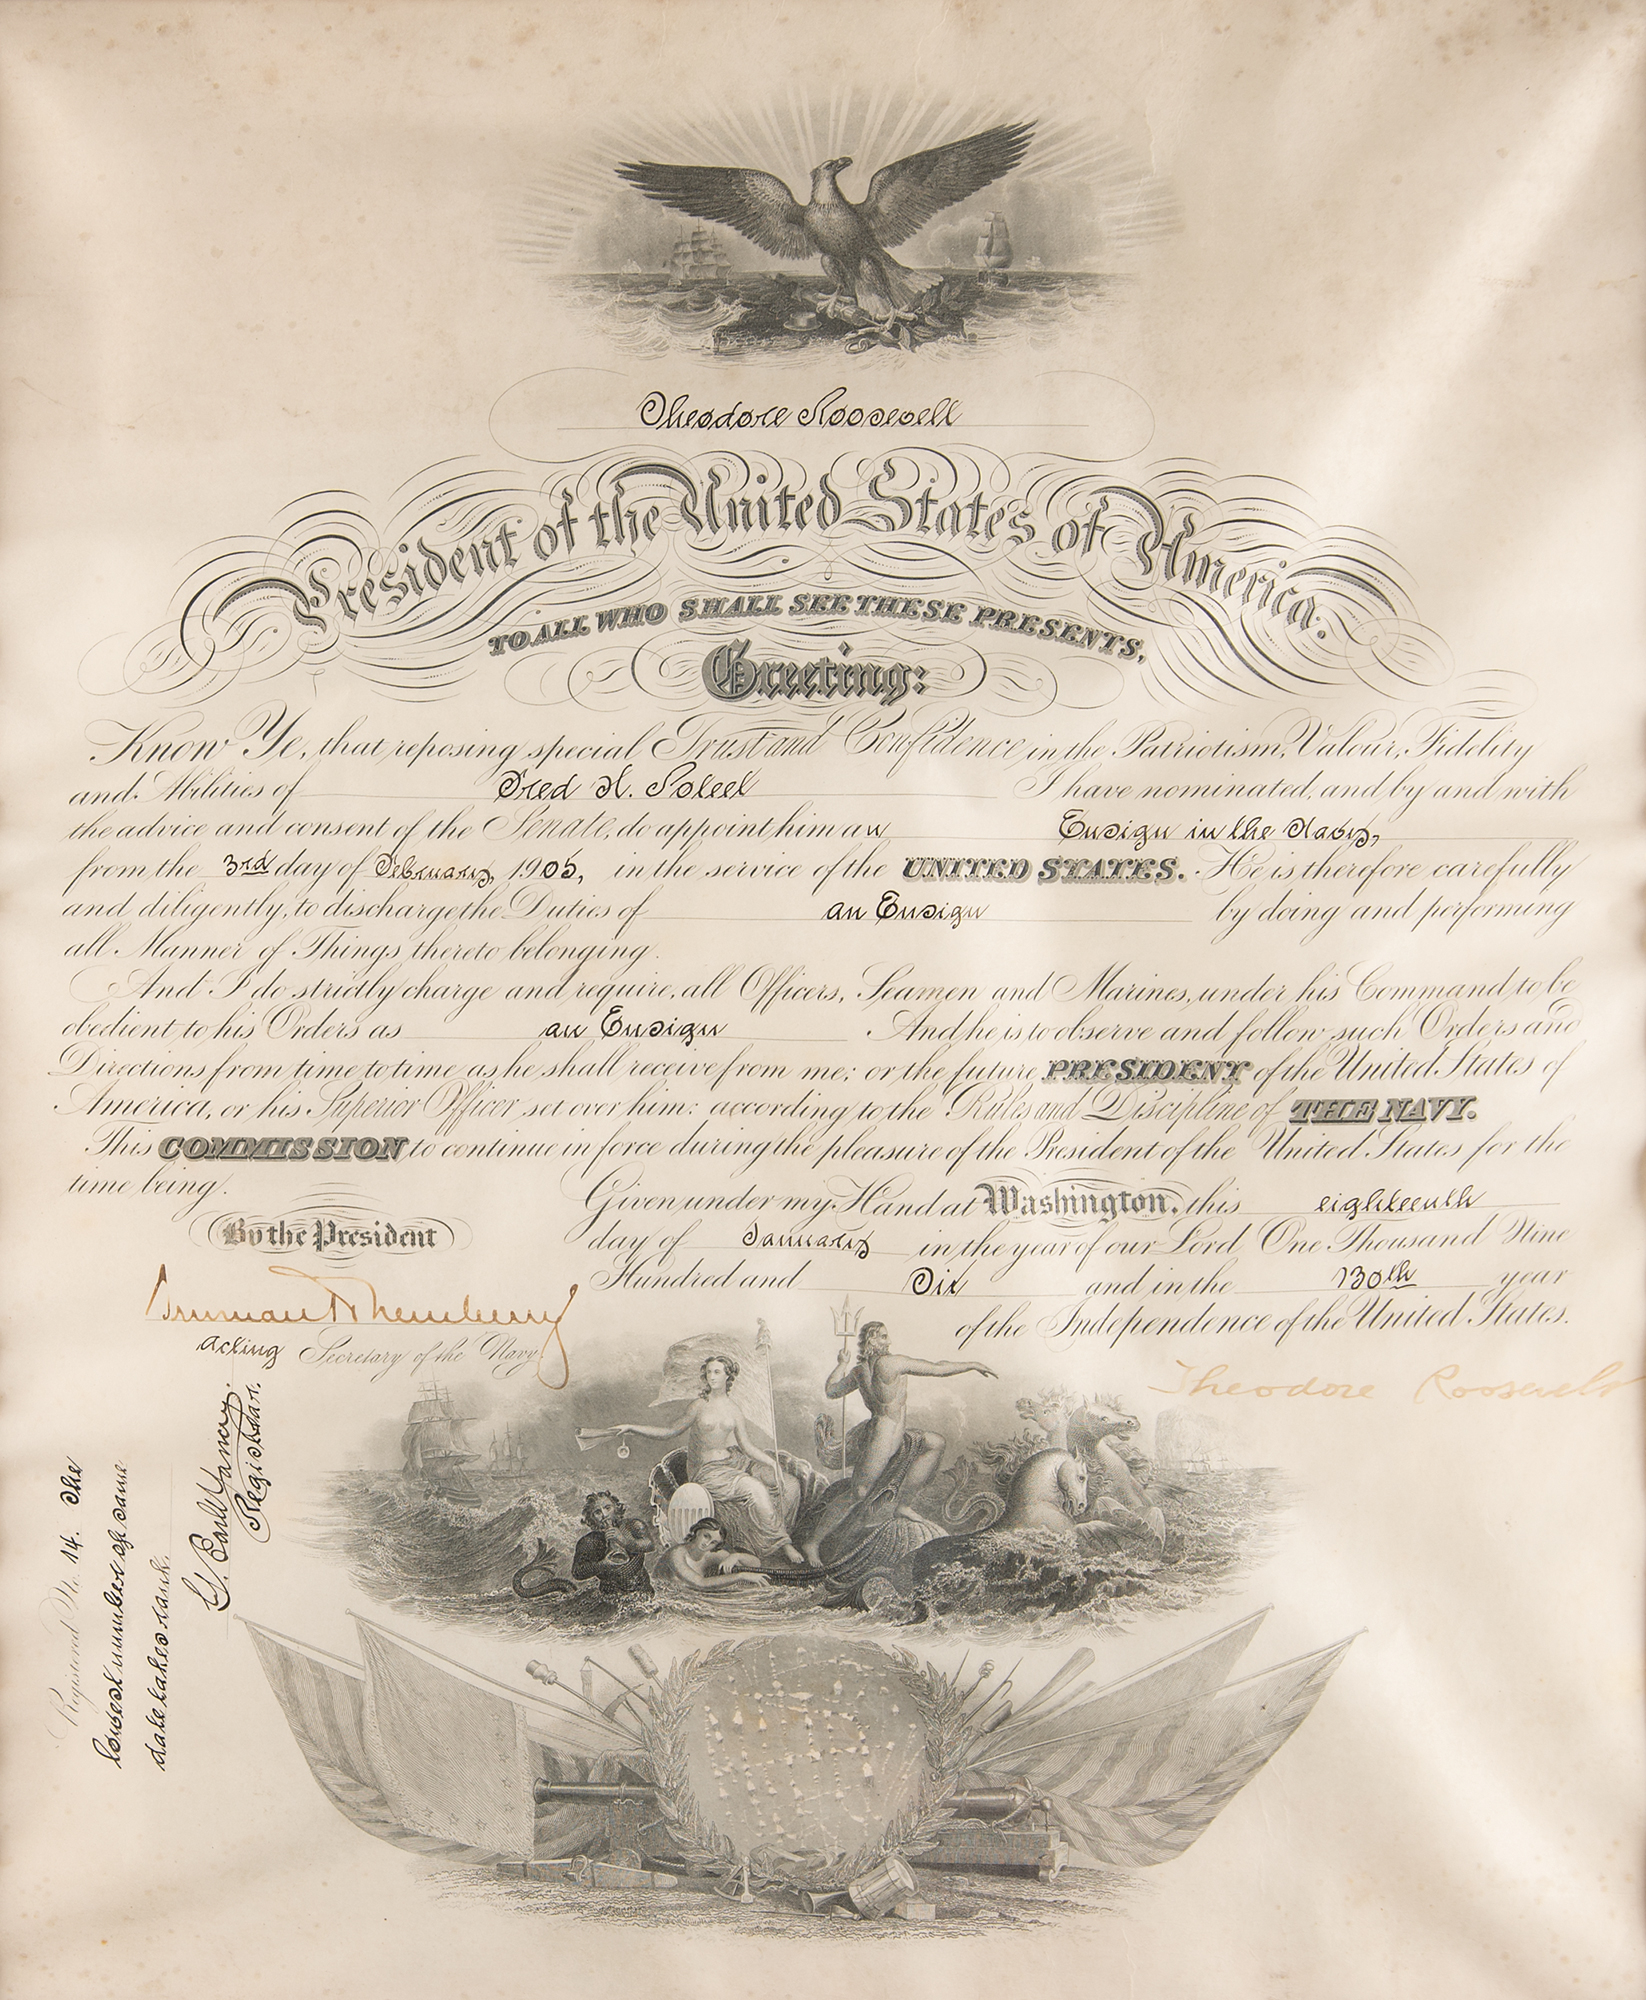 Theodore Roosevelt
President of the United States of America.
TO ALL WHO SHALL SEE THESE PRESENTS,
Greeting:
Know Ye, that reposing special Trust and Confidence in the Patriotism, Valour, Fidelity
and Abilities of Fred H. Poteet I have nominated, and by and with
the advice and consent of the Senate, do appoint him an Ensign in the Navy,
from the 3rd day of February, 1905, in the service of the UNITED STATES. He is therefore carefully
and diligently, to discharge the Duties of an Ensign by doing and performing
all Manner of Things thereto belonging.
And I do strictly charge and require, all Officers, Seamen and Marines, under his Command to be
obedient to his Orders as an Ensign And he is to observe and follow such Orders and
Directions from time to time as he shall receive from me; or the future PRESIDENT of the United States of
America, or his Superior Officer set over him: according to the Rules and Discipline of THE NAVY.
This COMMISSION to continue in force during the pleasure of the President of the United States for the
time being.
Given under my Hand at Washington, this eighteenth
day of January in the year of our Lord One Thousand Nine
Hundred and Six and in the 130th year
of the Independence of the United States.
By the President
Theodore Roosevelt
Truman H Newberry
acting Secretary of the Navy.
Registered No. 14. The
lowest number of same
date takes rank.
Registrar.